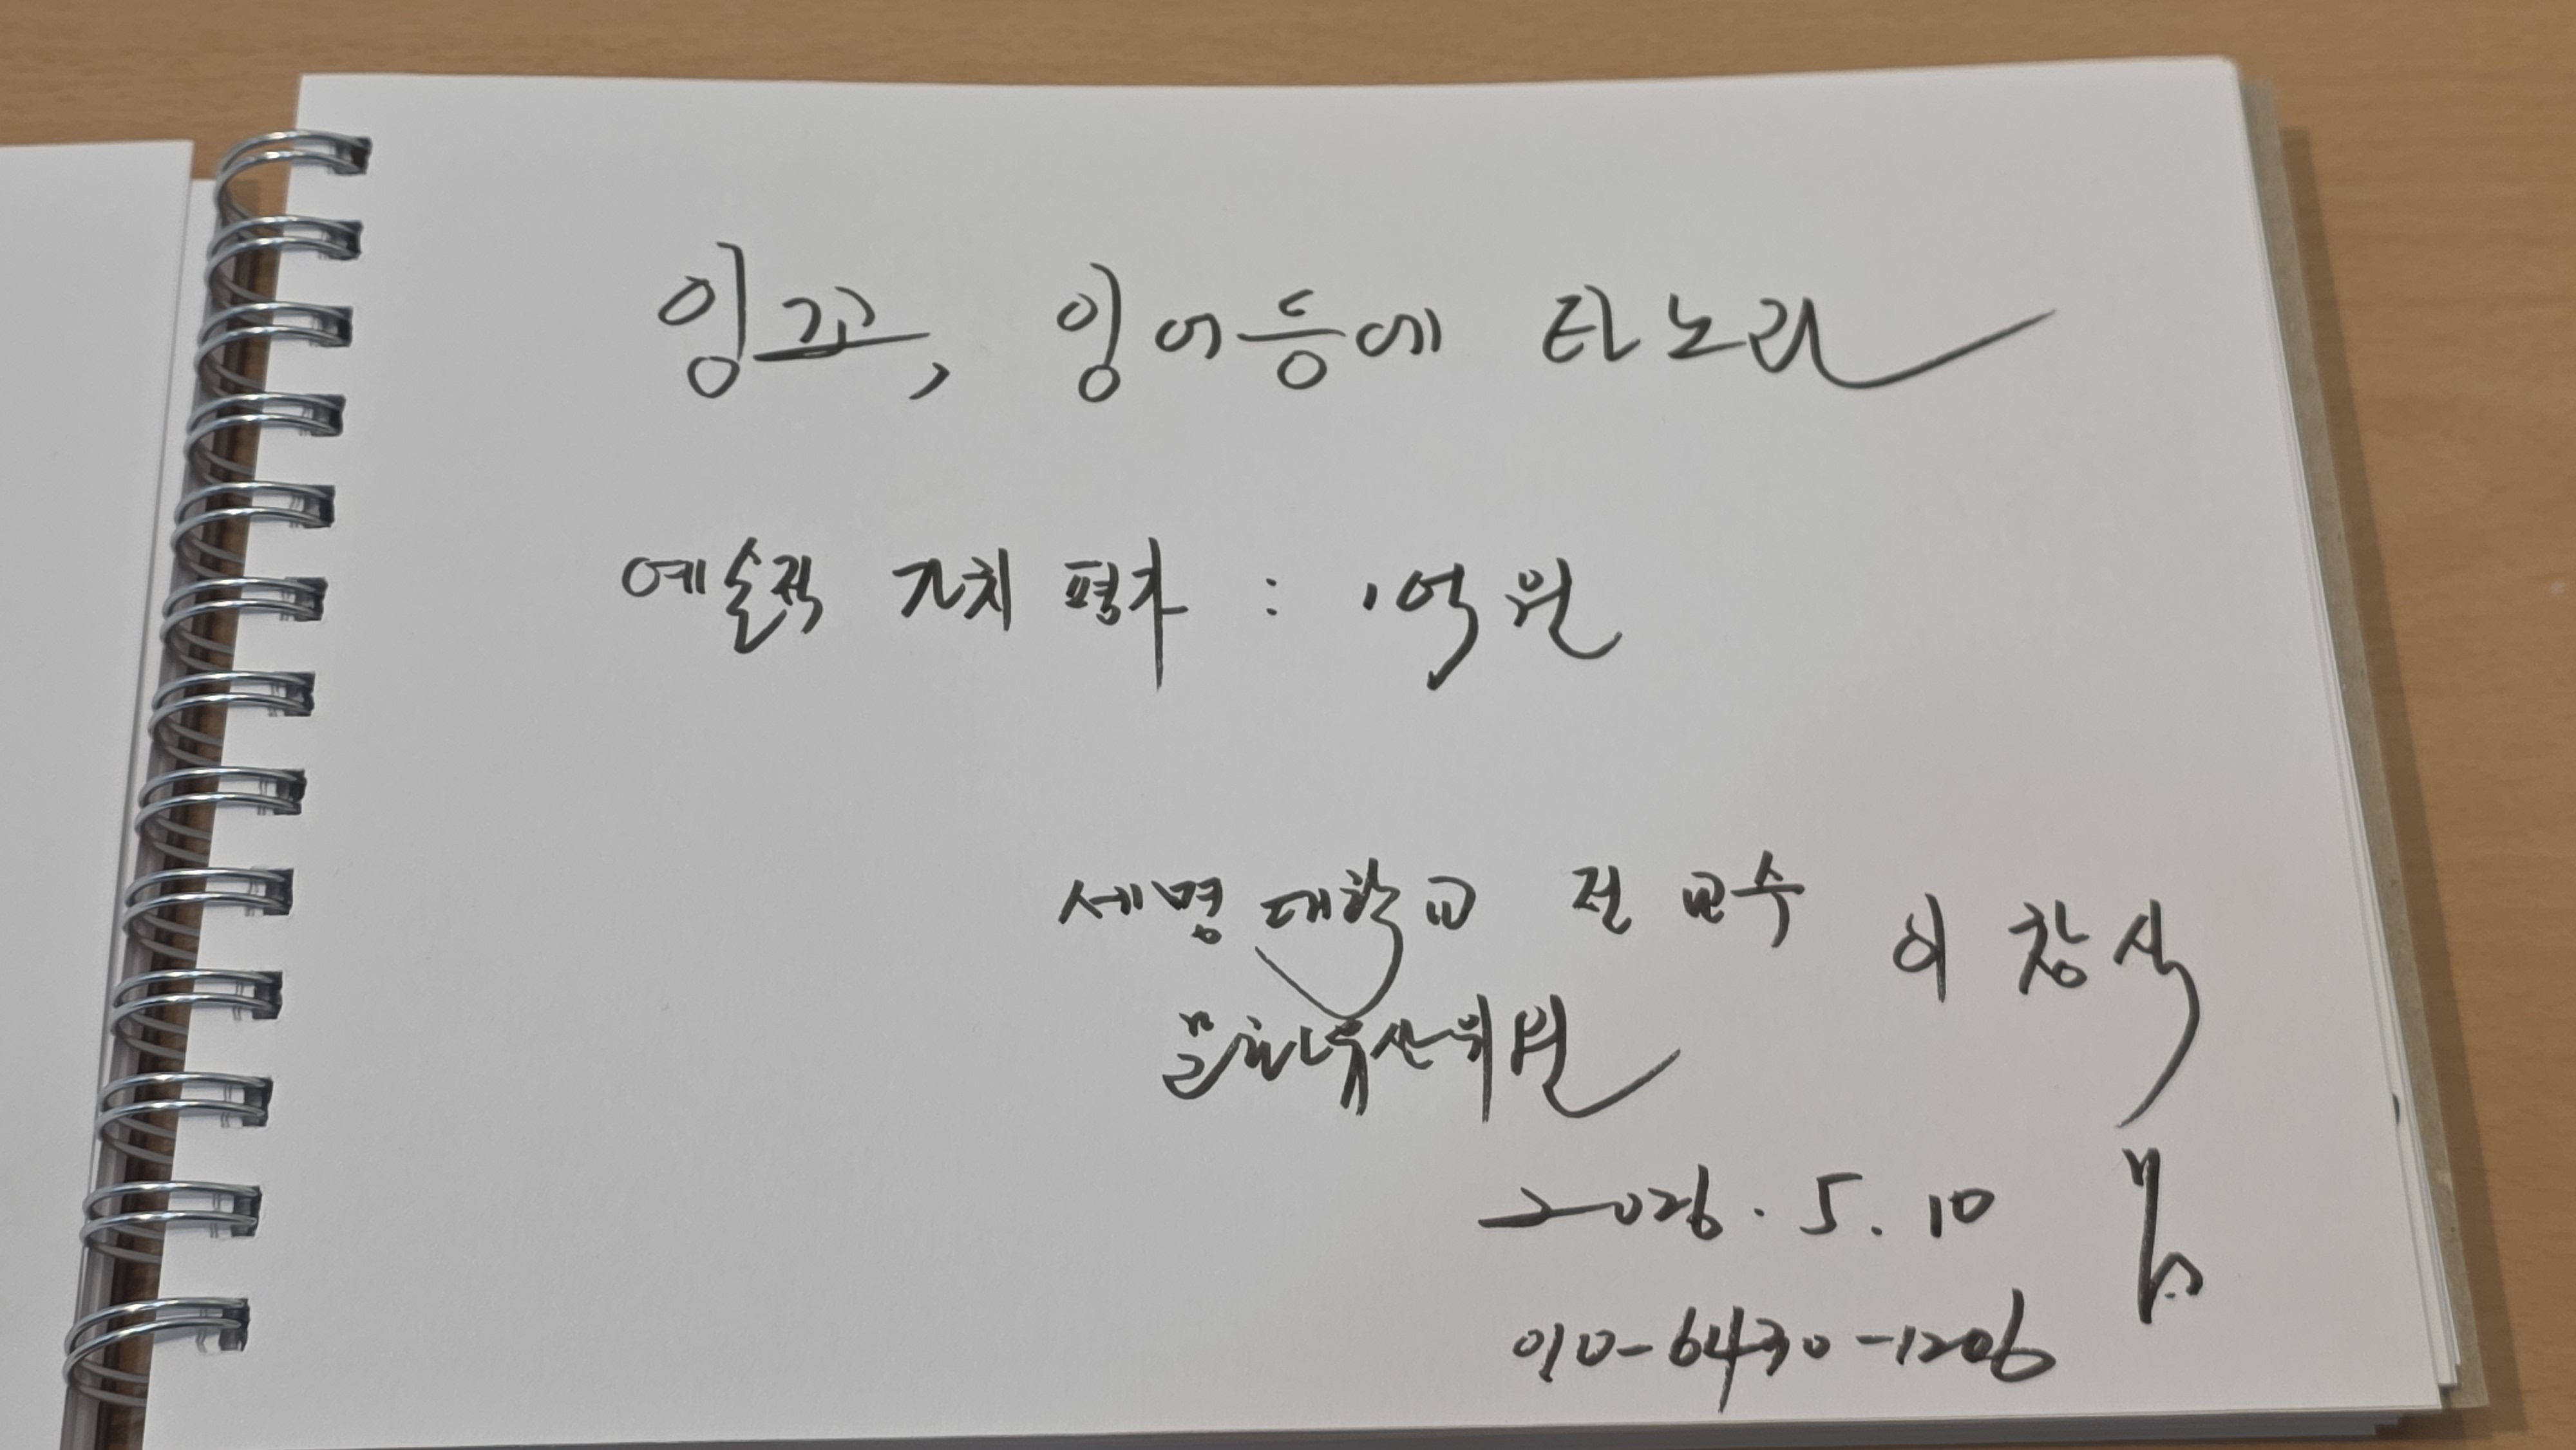 잉꼬, 잉어등에 타노라
예술적 가치 평가 : 1억원
세명대학교 전 교수 이창식
문화유산위원
2026. 5. 10
010-6430-1206